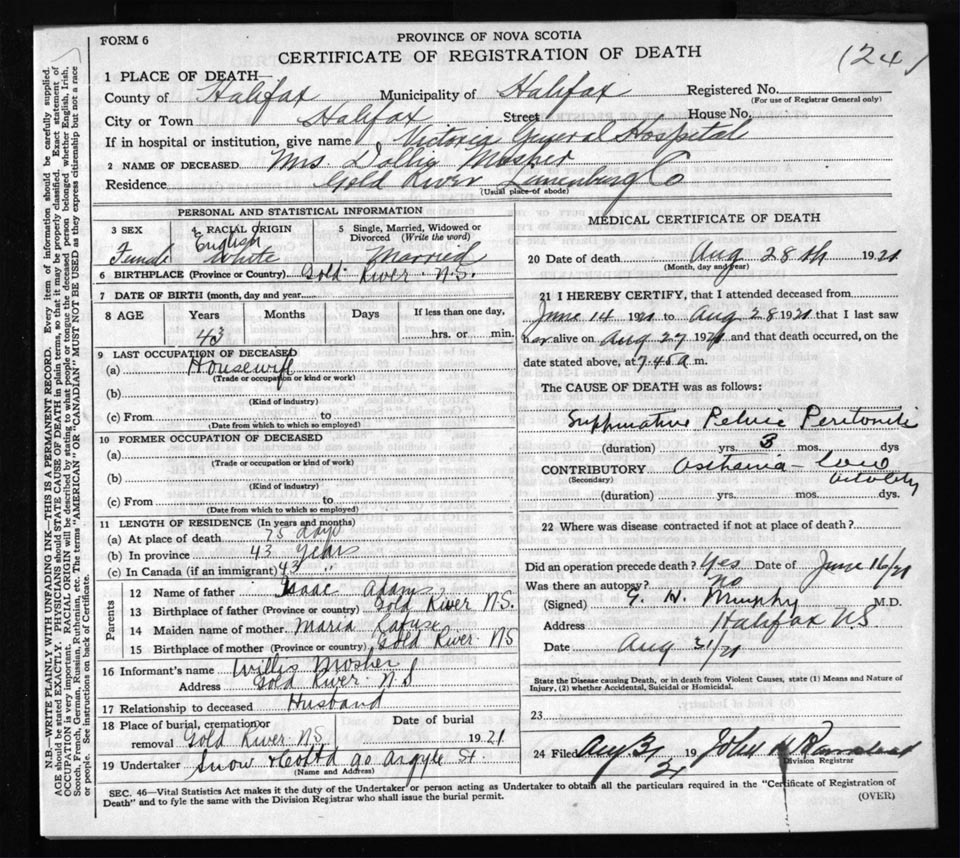 FORM 6
PROVINCE OF NOVA SCOTIA
CERTIFICATE OF REGISTRATION OF DEATH
(24)
1 PLACE OF DEATH—
County of Halifax Municipality of Halifax Registered No.
(For use of Registrar General only)
City or Town Halifax Street House No.
If in hospital or institution, give name Victoria General Hospital
2 NAME OF DECEASED Mrs. Dollie Mosher
Residence Gold River Lunenburg Co
(Usual place of abode)
PERSONAL AND STATISTICAL INFORMATION
3 SEX 4 RACIAL ORIGIN 5 Single, Married, Widowed or Divorced (Write the word)
English
Female White Married
6 BIRTHPLACE (Province or Country) Gold River N.S.
7 DATE OF BIRTH (month, day and year)
8 AGE Years Months Days If less than one day,
43 hrs. or min.
9 LAST OCCUPATION OF DECEASED
(a) Housewife
(Trade or occupation or kind or work)
(b)
(Kind of industry)
(c) From to
(Date from which to which so employed)
10 FORMER OCCUPATION OF DECEASED
(a)
(Trade or occupation or kind of work)
(b)
(Kind of industry)
(c) From to
(Date from which to which so employed)
11 LENGTH OF RESIDENCE (In years and months)
(a) At place of death 75 days
(b) In province 43 years
(c) In Canada (if an immigrant) 43 "
Parents
12 Name of father Isaac Adams
13 Birthplace of father (Province or country) Gold River N.S.
14 Maiden name of mother Maria
15 Birthplace of mother (Province or country) Gold River N.S
16 Informant's name Willis Mosher
Address Gold River N.S
17 Relationship to deceased Husband
18 Place of burial, cremation or removal Gold River N.S Date of burial 1921
19 Undertaker Snow & Co Ltd 90 Argyle St.
(Name and Address)
MEDICAL CERTIFICATE OF DEATH
20 Date of death Aug 28th 1921
(Month, day and year)
21 I HEREBY CERTIFY, that I attended deceased from
June 14 1921 to Aug 28 1921 that I last saw
her alive on Aug 27 1921 and that death occurred, on the
date stated above, at 7.45 a m.
The CAUSE OF DEATH was as follows:
Suppurative Pelvic Peritonitis
(duration) yrs. 3 mos. dys
CONTRIBUTORY Asthenia – low vitality
(Secondary)
(duration) yrs. mos. dys.
22 Where was disease contracted if not at place of death?
Did an operation precede death? Yes Date of June 16/21
Was there an autopsy? No
(Signed) G. H. Murphy M.D.
Address Halifax N.S.
Date Aug 31/21
State the Disease causing Death, or in death from Violent Causes, state (1) Means and Nature of
Injury, (2) whether Accidental, Suicidal or Homicidal.
23
24 Filed Aug 31 19 21 John
Division Registrar
SEC. 46—Vital Statistics Act makes it the duty of the Undertaker or person acting as Undertaker to obtain all the particulars required in the "Certificate of Registration of
Death" and to fyle the same with the Division Registrar who shall issue the burial permit.
(OVER)
N.B.—WRITE PLAINLY WITH UNFADING INK—THIS IS A PERMANENT RECORD. Every item of information should be carefully supplied.
AGE should be stated EXACTLY. PHYSICIANS should STATE CAUSE OF DEATH in plain terms, so that it may be properly classified. Exact statement of
OCCUPATION is very important. RACIAL ORIGIN will be described by stating to what people or tongue the deceased person belonged whether English, Irish,
Scotch, French, German, Russian, Ruthenian, etc. The terms "AMERICAN" OR "CANADIAN" MUST NOT BE USED as they express citizenship but not a race
or people. See instructions on back of Certificate.